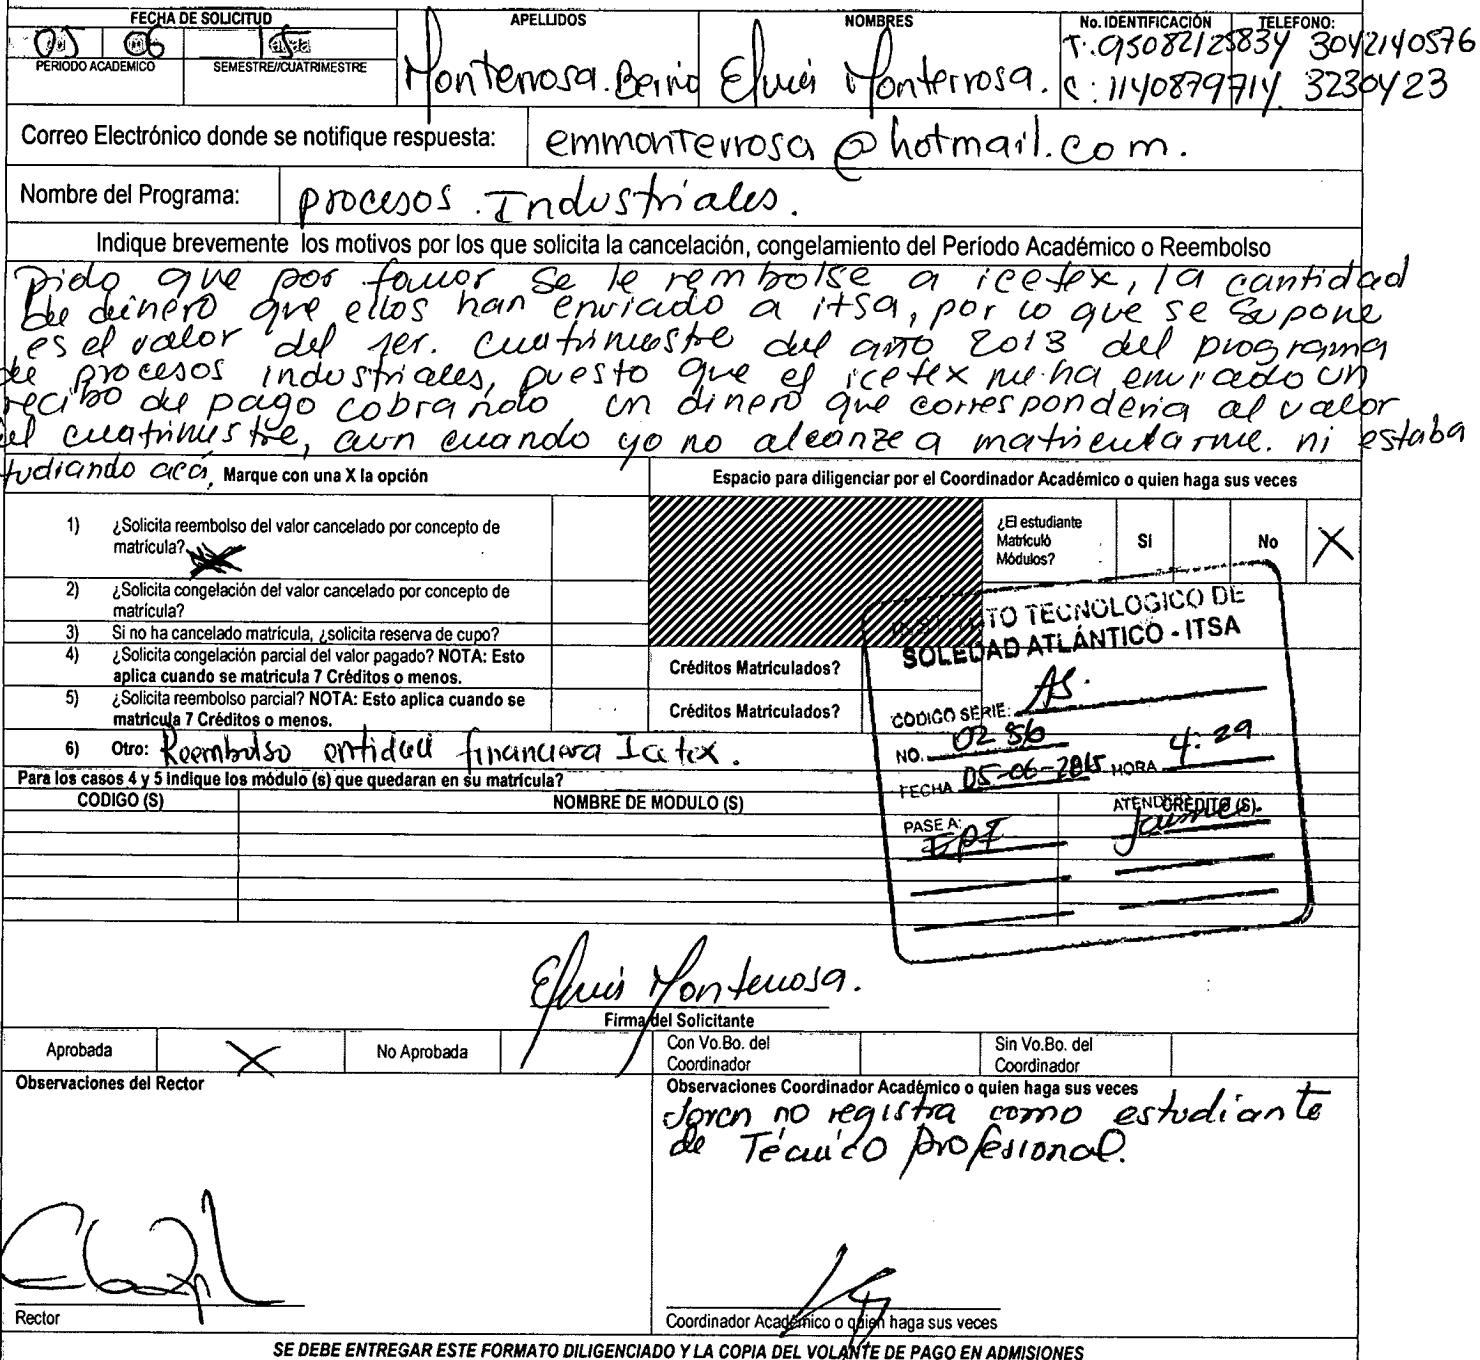 FECHA DE SOLICITUD APELLIDOS NOMBRES No. IDENTIFICACIÓN TELEFONO:
05 06 15
PERIODO ACADEMICO SEMESTRE//CUATRIMESTRE
Monterrosa. Berrio Elvis Monterrosa. T.95082125834 3042140576
C: 1140879714. 3230423
Correo Electrónico donde se notifique respuesta: emmonterrosa@hotmail.com.
Nombre del Programa: procesos Industriales.
Indique brevemente los motivos por los que solicita la cancelación, congelamiento del Período Académico o Reembolso
pido que por favor se le rembolse a icetex, la cantidad
de dinero que ellos han enviado a itsa, por lo que se supone
es el valor del 1er. cuatrimestre del año 2013 del programa
de procesos industriales, puesto que el icetex me ha enviado un
recibo de pago cobrando un dinero que corresponderia al valor
del cuatrimestre, aun cuando yo no alcanze a matricularme. ni estaba
tudiando acá. Marque con una X la opción Espacio para diligenciar por el Coordinador Académico o quien haga sus veces
1) ¿Solicita reembolso del valor cancelado por concepto de matrícula?
¿El estudiante Matriculó Módulos? SI No X
2) ¿Solicita congelación del valor cancelado por concepto de matrícula?
3) Si no ha cancelado matrícula, ¿solicita reserva de cupo?
4) ¿Solicita congelación parcial del valor pagado? NOTA: Esto aplica cuando se matricula 7 Créditos o menos. Créditos Matriculados?
5) ¿Solicita reembolso parcial? NOTA: Esto aplica cuando se matricula 7 Créditos o menos. Créditos Matriculados?
6) Otro: Reembolso entidad financiera Icetex.
TO TECNOLOGICO DE
SOLEDAD ATLÁNTICO - ITSA
CODIGO SERIE: AS.
NO. 0286
FECHA 05-06-2015 HORA 4:29
PASE A: EPI Jaime
Para los casos 4 y 5 indique los módulo (s) que quedaran en su matrícula?
CODIGO (S) NOMBRE DE MODULO (S) CRÉDITO (S).
Elvis Monterrosa.
Firma del Solicitante
Aprobada X No Aprobada Con Vo.Bo. del Coordinador Sin Vo.Bo. del Coordinador
Observaciones del Rector Observaciones Coordinador Académico o quien haga sus veces
Joven no registra como estudiante
de Técnico profesional.
Rector Coordinador Académico o quien haga sus veces
SE DEBE ENTREGAR ESTE FORMATO DILIGENCIADO Y LA COPIA DEL VOLANTE DE PAGO EN ADMISIONES